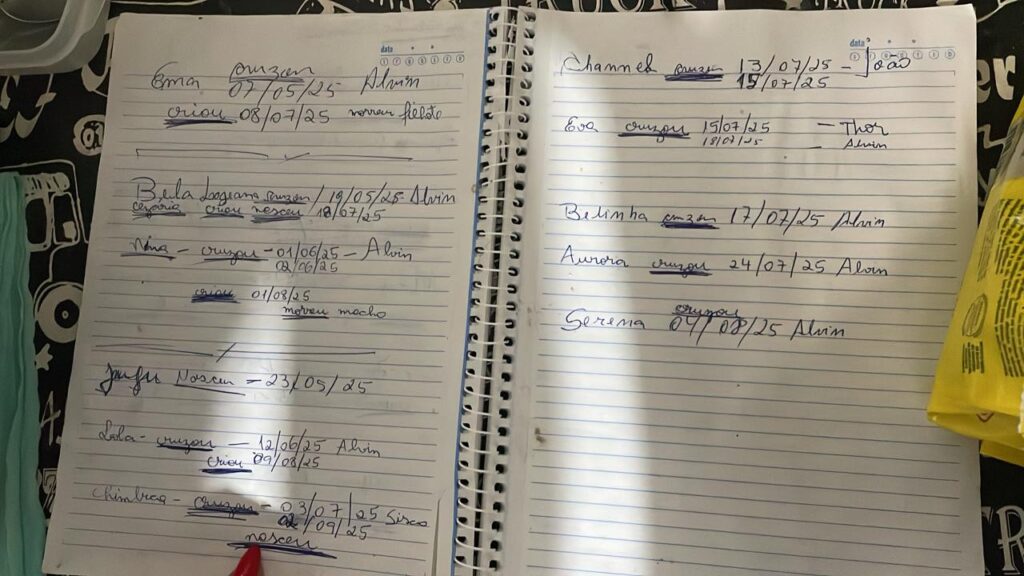 data
cruzou
Ema 07/05/25 Alvin
criou 08/07/25 morreu filhote
Beila cruzou / 19/05/25 Alvin
cesária criou nasceu 18/07/25
Nina - cruzou - 01/06/25 - Alvin
02/06/25
criou 01/08/25
morreu macho
Nasceu - 23/05/25
Lola - cruzou - 12/06/25 Alvin
criou 09/08/25
cruzou - 03/07/25
02/09/25
nasceu
data
Channel cruzou 13/07/25 -
15/07/25
Eva cruzou 15/07/25 - Thor
18/07/25 - Alvin
Belinha cruzou 17/07/25 Alvin
Aurora cruzou 24/07/25 Alvin
cruzou
Serena 04/08/25 Alvin